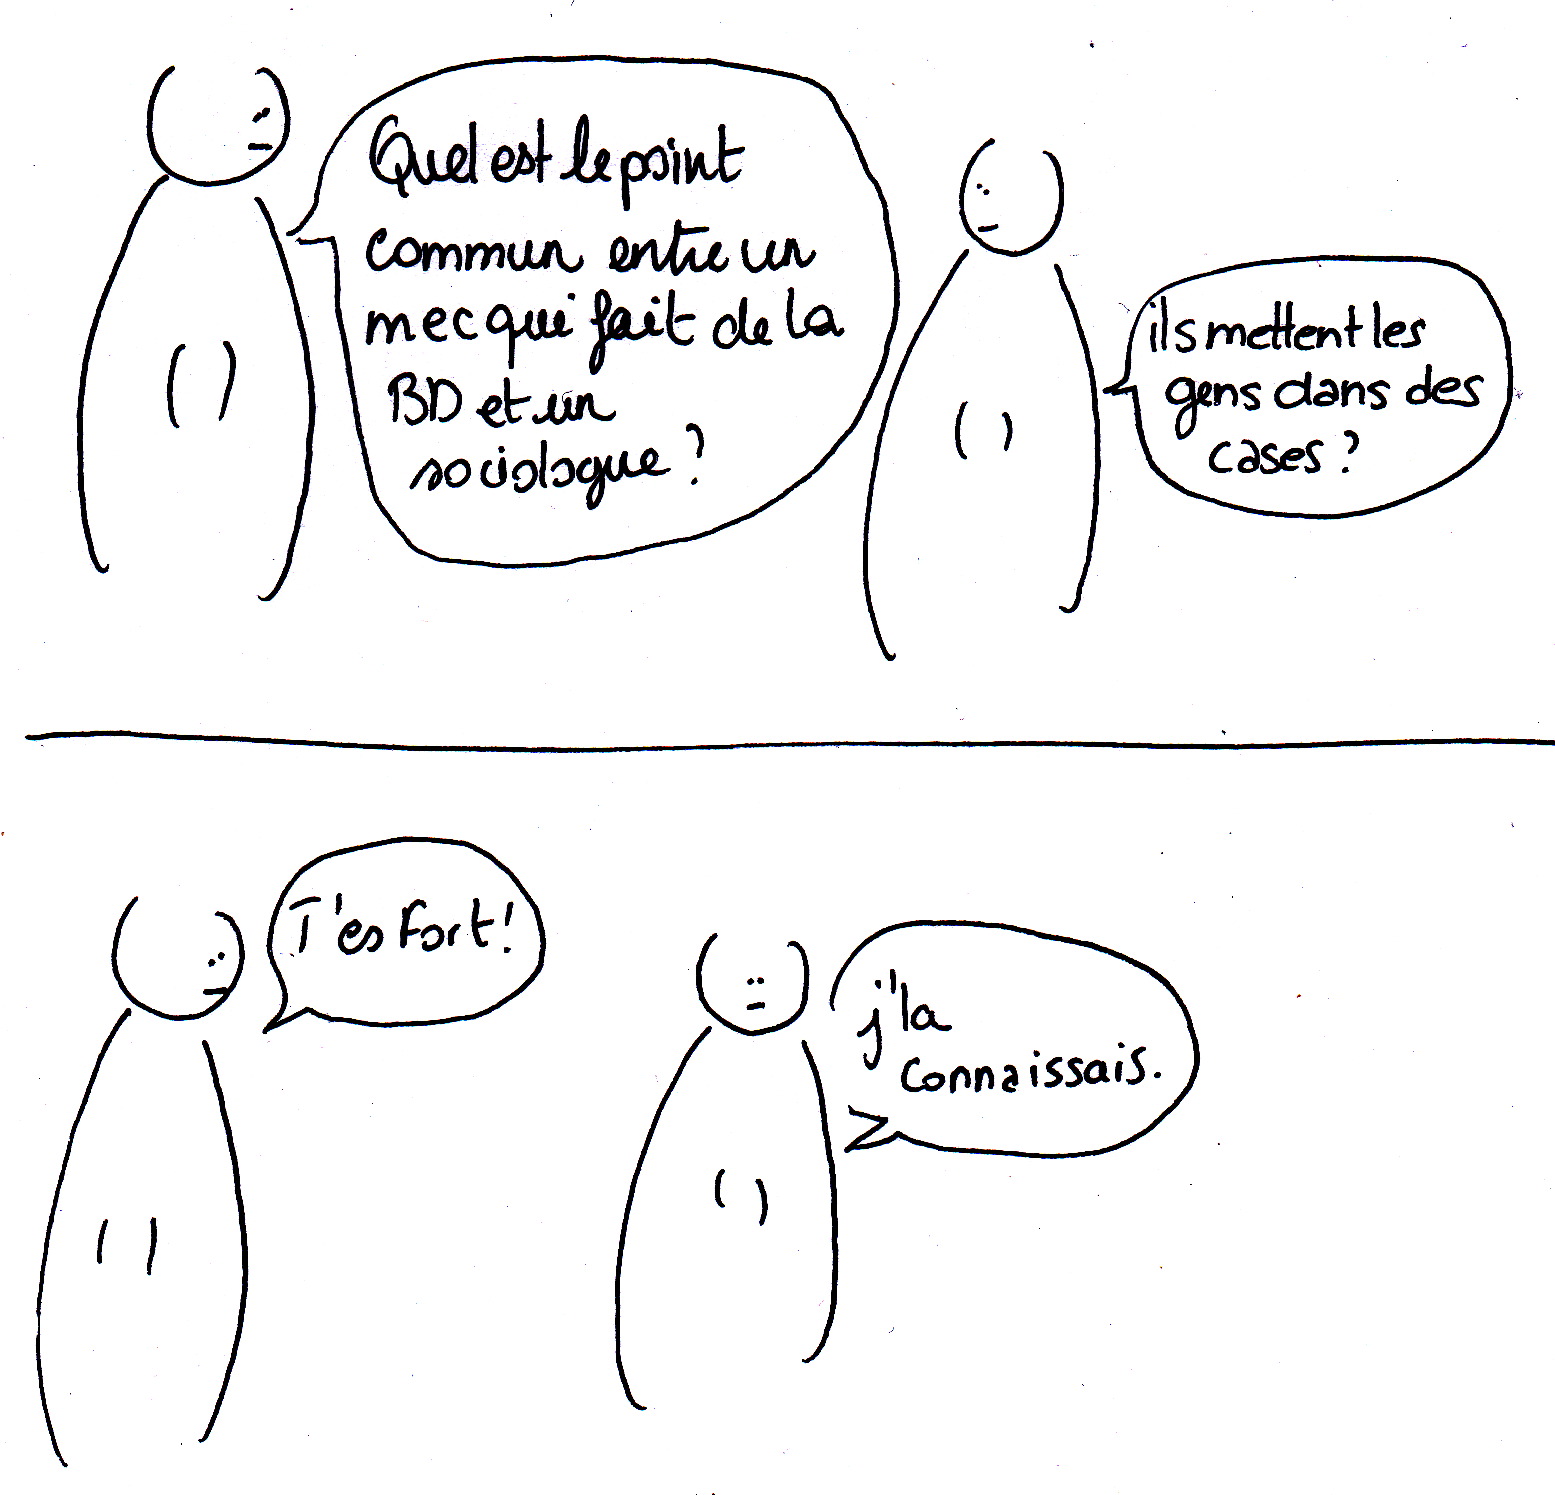 Quel est le point
commun entre un
mec qui fait de la
BD et un
sociologue ?
ils mettent les
gens dans des
cases ?
T'es fort !
j'la
connaissais.